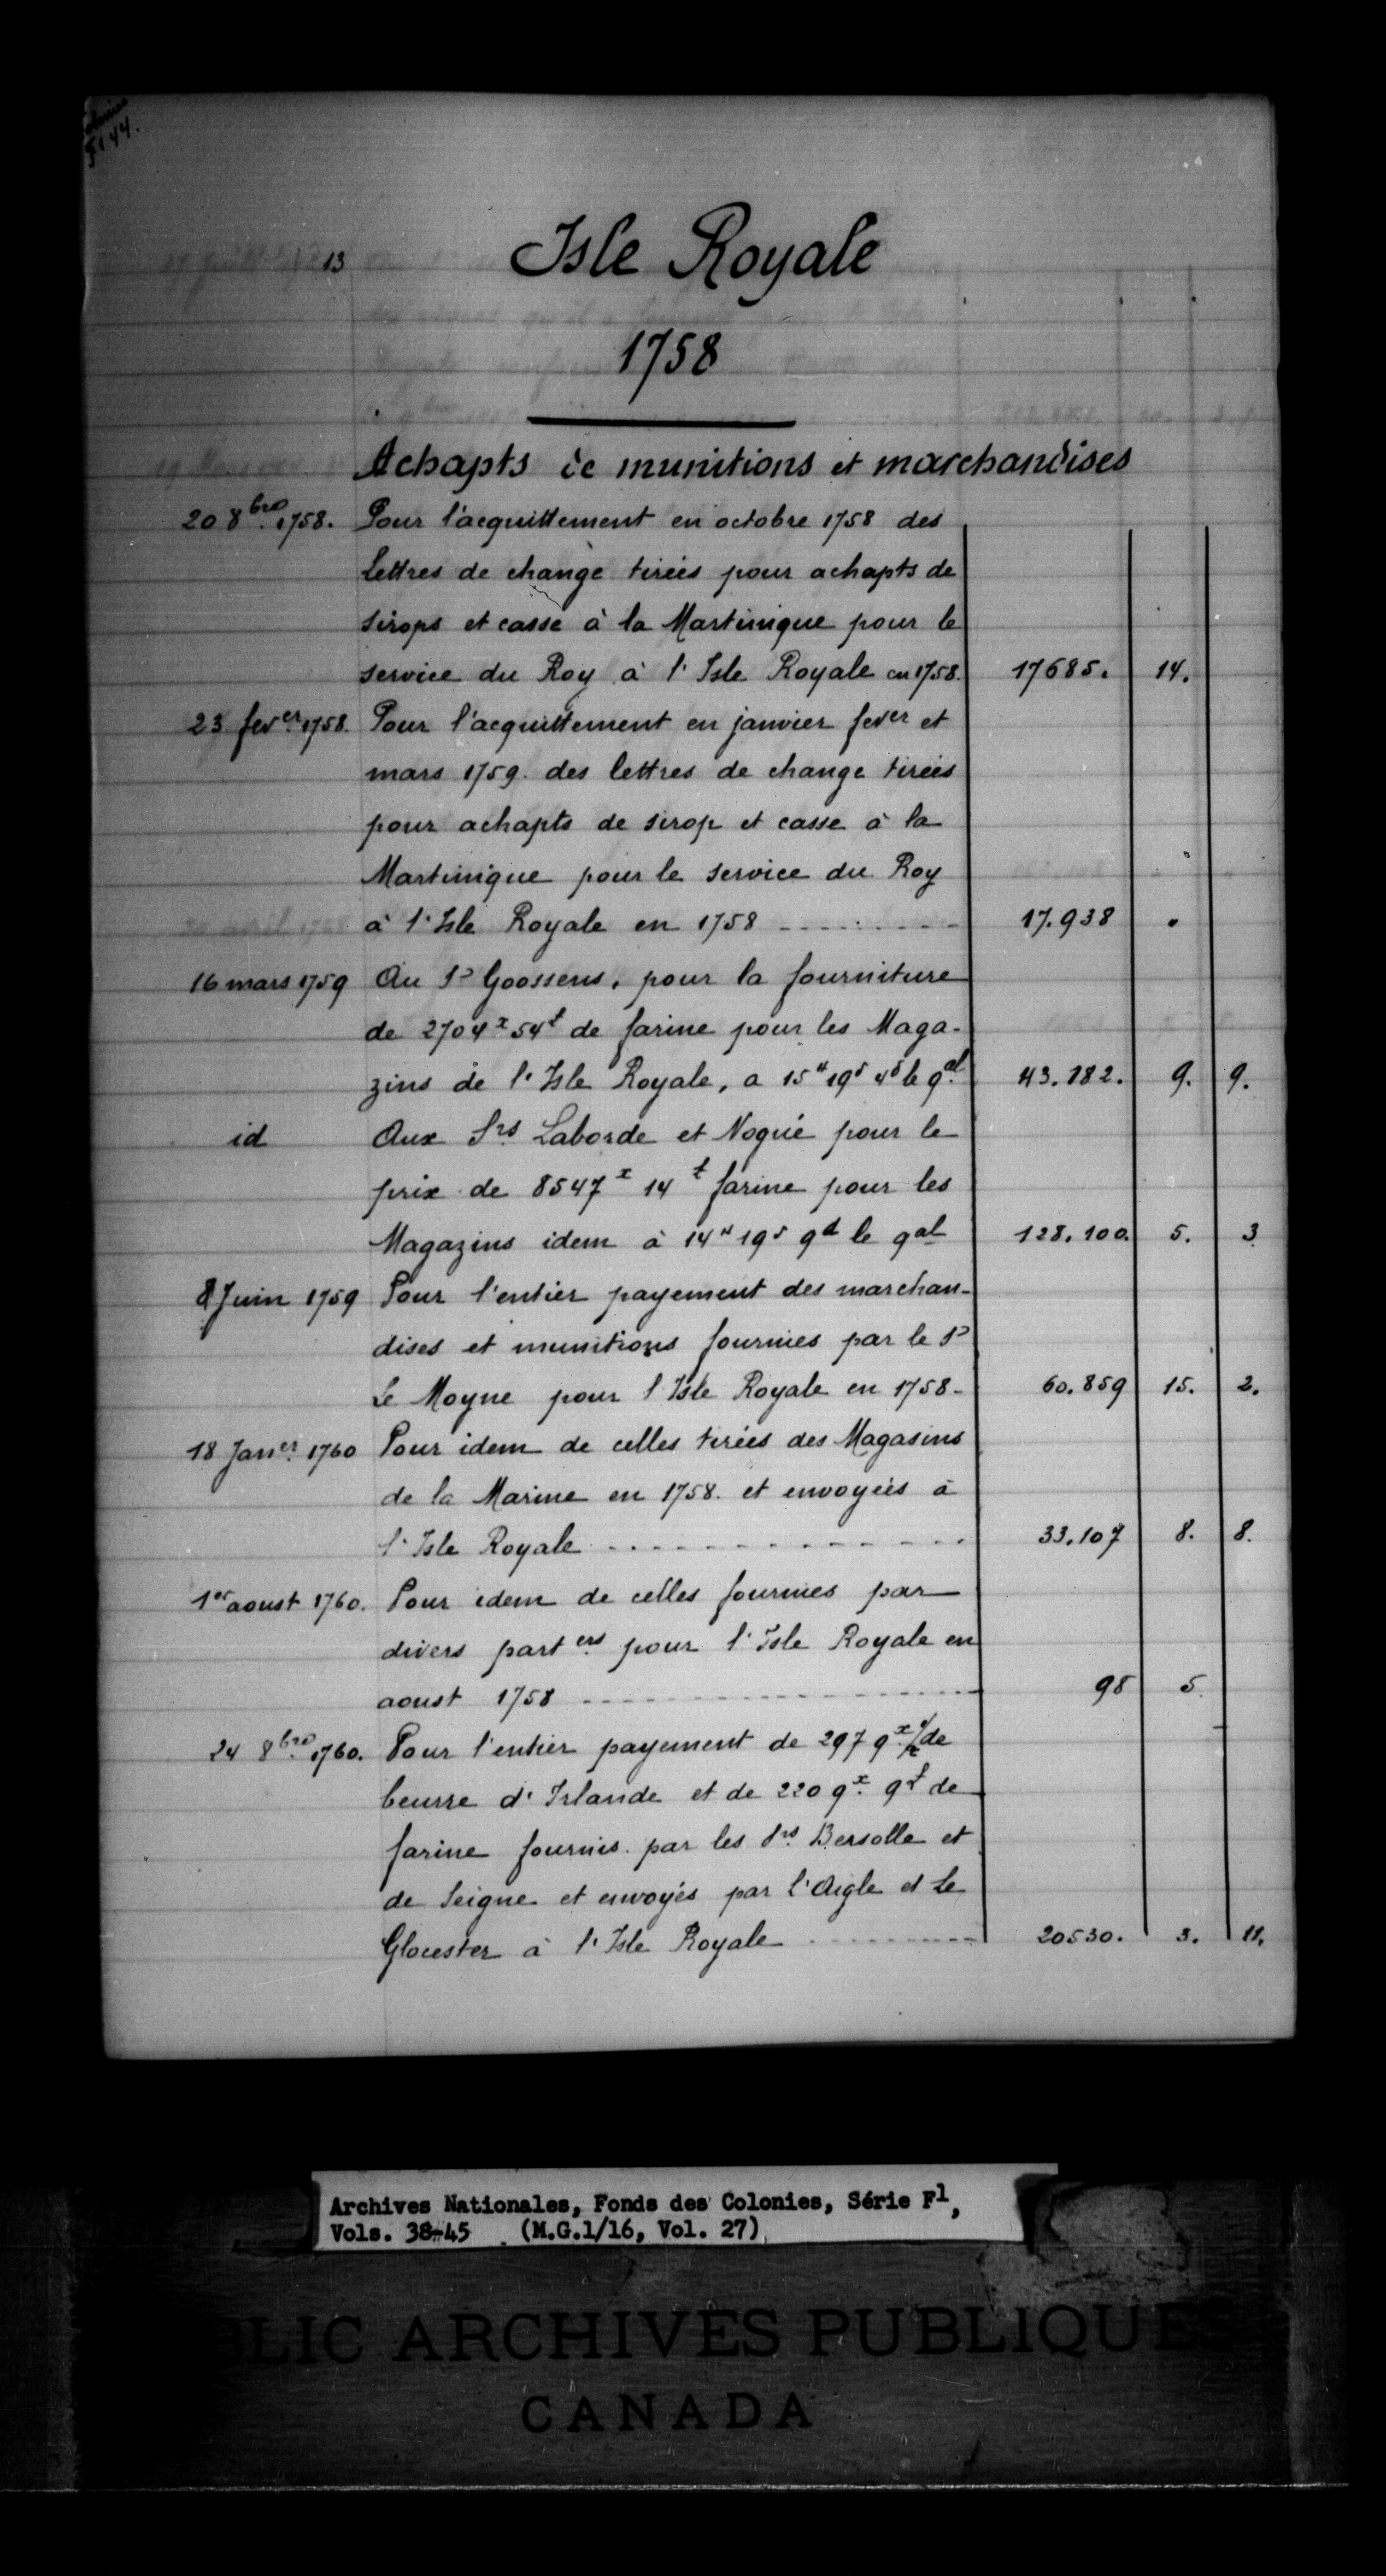 F1 44.
13
Isle Royale
1758
Achapts de munitions et marchandises
20 8bre 1758. Pour l'acquittement en octobre 1758 des
Lettres de change tirées pour achapts de
sirops et casse à la Martinique pour le
service du Roy à l'Isle Royale en 1758. 17685. 14.
23 fever 1758. Pour l'acquittement en janvier fever et
mars 1759. des lettres de change tirées
pour achapts de sirop et casse à la
Martinique pour le service du Roy
à l'Isle Royale en 1758 17.938 "
16 mars 1759 Au Sr Goossens, pour la fourniture
de 2704x 54t de farine pour les Maga-
zins de l'Isle Royale, a 15# 19s 4d le qal 43.182. 9. 9.
id Aux Srs Laborde et Nogué pour le
prix de 8547x 14t farine pour les
Magazins idem à 14# 19s 9d le qal 128.100. 5. 3.
8 Juin 1759 Pour l'entier payement des marchan-
dises et munitions fournies par le Sr
Le Moyne pour l'Isle Royale en 1758- 60.859 15. 2.
18 Janer 1760 Pour idem de celles tirées des Magasins
de la Marine en 1758. et envoyées à
l'Isle Royale 33.107 8. 8.
1er aoust 1760. Pour idem de celles fournies par
divers parters pour l'Isle Royale en
aoust 1758 98 5.
24 8bre 1760. Pour l'entier payement de 297 qx de
beurre d'Irlande et de 220 qx 9t de
farine fournis par les Srs Bersolle et
de Seigne et envoyés par l'Aigle et le
Glocester à l'Isle Royale 20530. 3. 11.
Archives Nationales, Fonds des Colonies, Série F1,
Vols. 38-45 (M.G.1/16, Vol. 27)
BLIC ARCHIVES PUBLIQUES
CANADA